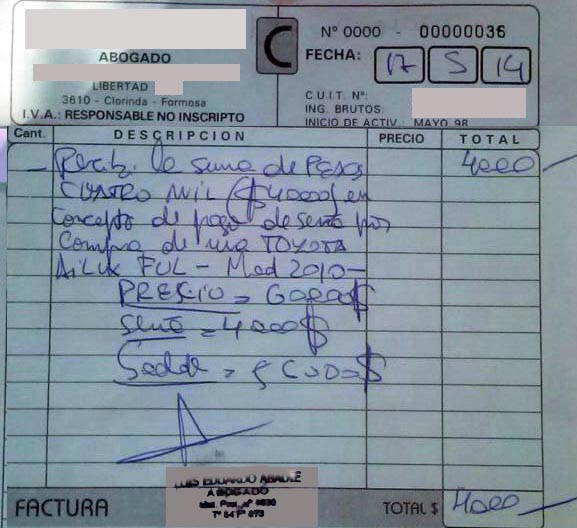 ABOGADO
LIBERTAD
3610 - Clorinda - Formosa
I.V.A.: RESPONSABLE NO INSCRIPTO
C
Nº 0000 - 00000036
FECHA: 17 5 14
C.U.I.T. Nº:
ING. BRUTOS:
INICIO DE ACTIV.: MAYO 98
Cant. DESCRIPCION PRECIO TOTAL
la suma de PESOS 4000
CUATRO MIL ($4000) en
Concepto de pago de seña por
Compra de una TOYOTA
AiLUX FUL - Mod 2010-
PRECIO = 60000$
seña = 4000$
Saldo =
LUIS EDUARDO
ABOGADO
FACTURA
TOTAL $ 4000